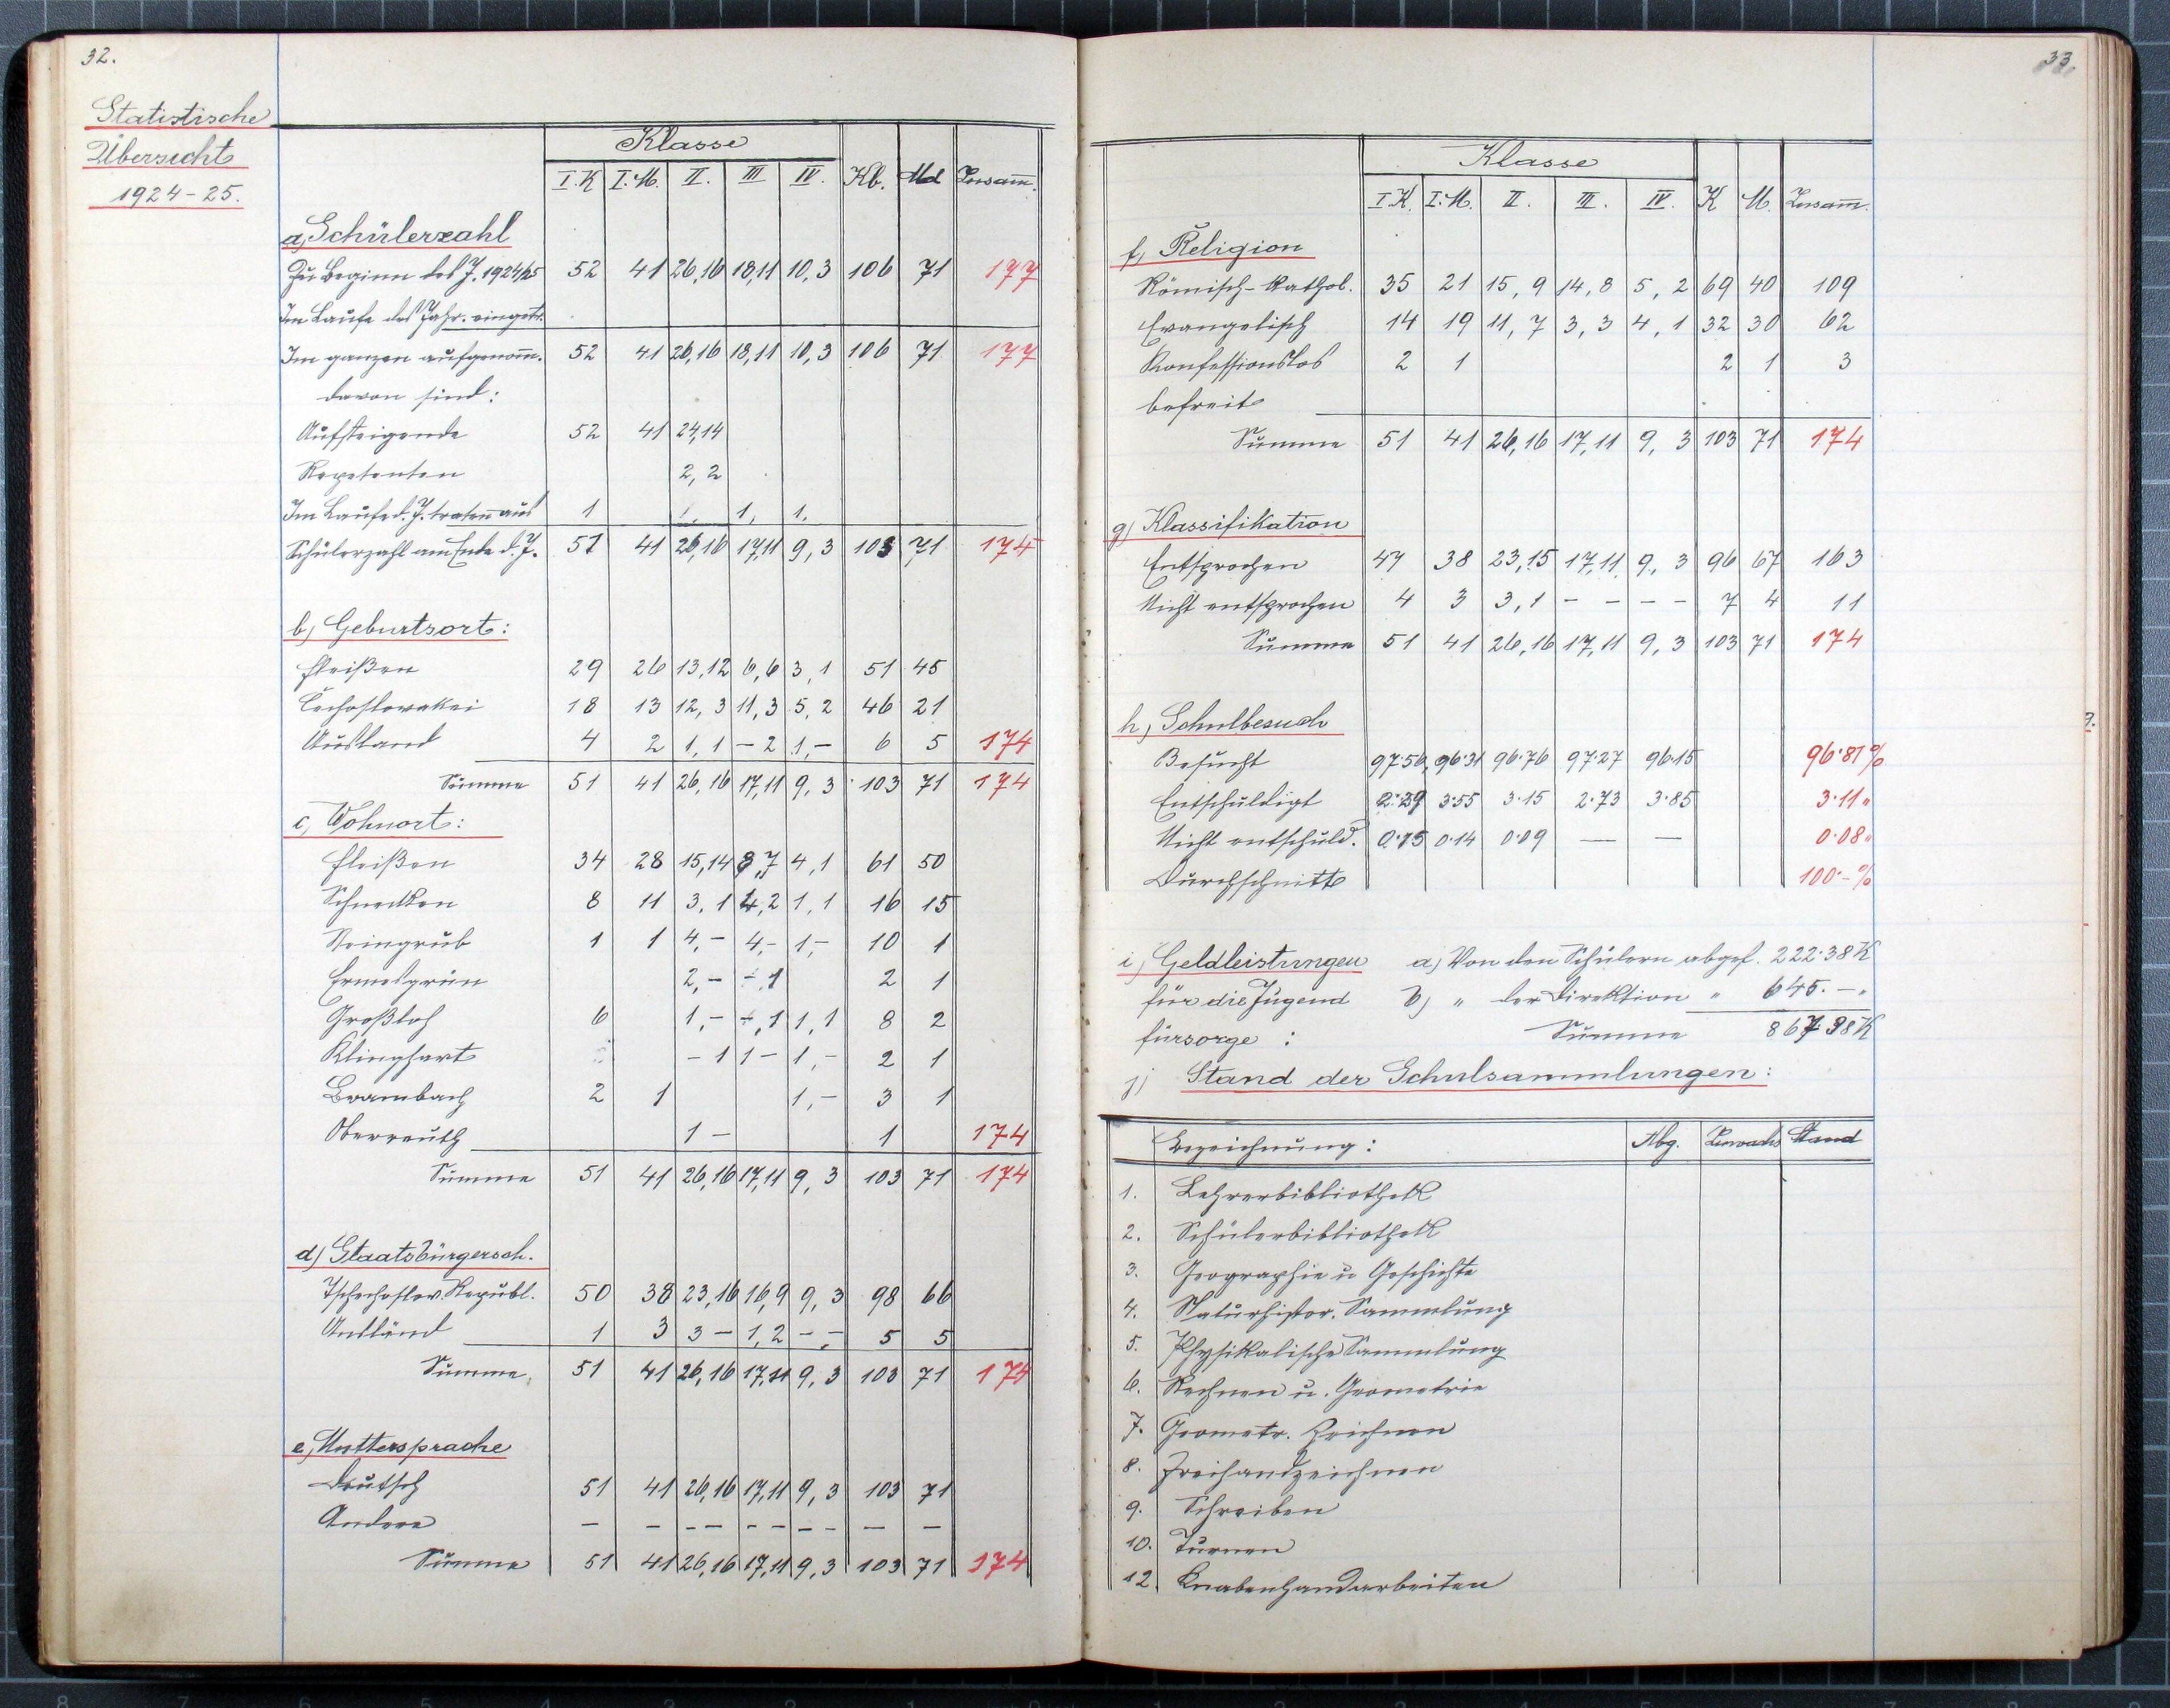 32.
Statistische
Übersicht
1924-25.
Klasse
I.K I.M. II. III IV. Kb. Md Zusam̅.
a, Schülerzahl
Zu Beginn des J. 1924/25 52 41 26,16 18,11 10,3 106 71 177
Im Laufe des Jahr. eingetr.
Im ganzen aufgenom̅. 52 41 26,16 18,11 10,3 106 71 177
davon sind:
Aufsteigende 52 41 24,14
Repetenten 2, 2
Im Laufe d. J. traten aus 1 1, 1, 1,
Schülerzahl am Ende d. J. 51 41 26,16 17,11 9, 3 103 71 174
b, Geburtsort:
Fleißen 29 26 13,12 6,6 3, 1 51 45
Čechoslovakei 18 13 12, 3 11, 3 5, 2 46 21
Ausland 4 2 1, 1 - 2 1,- 6 5 174
Summe 51 41 26,16 17,11 9, 3 103 71 174
c, Wohnort:
Fleißen 34 28 15,14 8,7 4,1 61 50
Schnecken 8 11 3, 1 4,2 1,1 16 15
Steingrub 1 1 4,- 4,- 1,- 10 1
Ermesgrün 2,- -,1 2 1
Großloh 6 1,- -,1 1,1 8 2
Klinghart - 1 1 - 1,- 2 1
Brambach 2 1 1,- 3 1
Oberreuth 1 - 1 174
Summe 51 41 26,16 17,11 9, 3 103 71 174
d) Staatsbürgersch.
Tschechoslov. Republ. 50 38 23,16 16,9 9, 3 98 66
Ausländ 1 3 3 - 1,2 -,- 5 5
Summe 51 41 26,16 17,11 9, 3 103 71 174
e, Muttersprache
Deutsch 51 41 26,16 17,11 9, 3 103 71
Andere - - - - - - - - - -
Summe 51 41 26,16 17,11 9,3 103 71 174
33.
Klasse
I.K. I.M. II. III. IV. K M. Zusam̅.
f, Religion
Römisch-kathol. 35 21 15, 9 14, 8 5, 2 69 40 109
Evangelisch 14 19 11, 7 3, 3 4, 1 32 30 62
Konfessionslos 2 1 2 1 3
befreit
Summe 51 41 26,16 17,11 9, 3 103 71 174
g) Klassifikation
Entsprochen 47 38 23,15 17,11 9, 3 96 67 163
Nicht entsprochen 4 3 3,1 - - - - 7 4 11
Summe 51 41 26,16 17,11 9, 3 103 71 174
h, Schulbesuch
Besucht 97·56, 96·31 96·76 97·27 96·15 96·81%
Entschuldigt 2·29 3·55 3·15 2·73 3·85 3·11 "
Nicht entschuld. 0·15 0·14 0·09 — — 0·08 "
Durchschnitt 100·-%
i, Geldleistungen a, Von den Schülern abgef. 222·38 K
für die Jugend b) " der Direktion " 645.- "
fürsorge : Summe 867·38 K
j) Stand der Schulsammlungen:
Bezeichnung: Abg. Zuwachs Stand
1. Lehrerbibliothek
2. Schülerbibliothek
3. Geographie u Geschichte
4. Naturhistor. Sammlung
5. Physikalische Sammlung
6. Rechnen u. Geometrie
7. Geometr. Zeichnen
8. Freihandzeichnen
9. Schreiben
10. Turnen
12. Knabenhandarbeiten